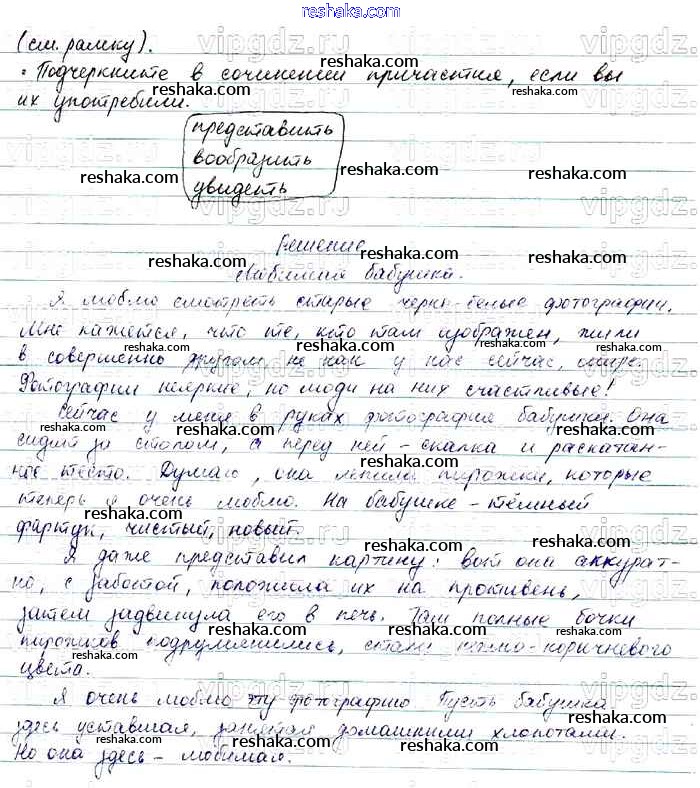 reshaka.com
(см. рамку).
• Подчеркните в сочинении причастия, если вы
их употребили.
представить
вообразить
увидеть
Решение
Любимая бабушка.
Я люблю смотреть старые черно-белые фотографии.
Мне кажется, что те, кто там изображен, жили
в совершенно другом, не как у нас сейчас, мире.
Фотографии неяркие, но люди на них счастливые!
Сейчас у меня в руках фотография бабушки. Она
сидит за столом, а перед ней – скалка и раскатан-
ное тесто. Думаю, она лепила пирожки, которые
теперь я очень люблю. На бабушке – тёмный
фартук, чистый, новый.
Я даже представил картину: вот она аккурат-
но, с заботой, положила их на противень,
затем задвинула его в печь. Там полные бочки
пирожков подрумянились, стали темно-коричневого
цвета.
Я очень люблю эту фотографию. Пусть бабушка
здесь уставшая, занятая домашними хлопотами.
Но она здесь – любимая.